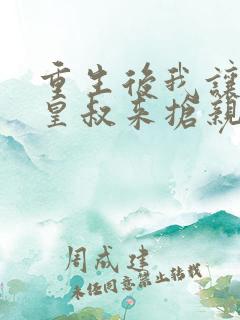 重生後我讓
皇叔來搶親
周成建
未经同意禁止转载